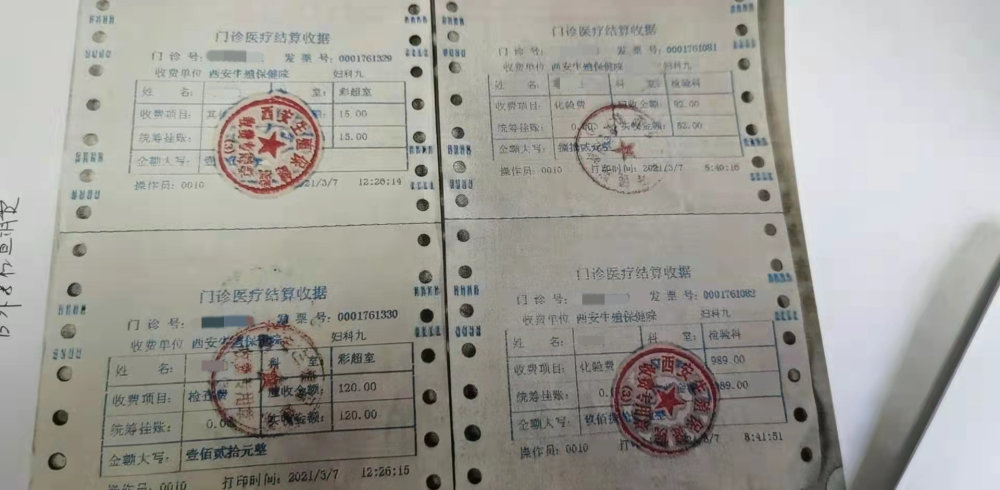 门诊医疗结算收据
门 诊 号:
发 票 号: 0001761329
收费单位 西安生殖保健院 妇科九
姓 名:
室: 彩超室
收费项目: 其
15.00
统筹挂账:
15.00
金额大写: 壹
操作员: 0010
2021/3/7 12:26:14
门诊医疗结算收据
门 诊 号:
发 票 号: 0001761081
收费单位 西安生殖保健院 妇科九
姓 名:
科 室: 检验科
收费项目: 化验费
应收金额: 82.00
统筹挂账: 0.
实收金额: 82.00
金额大写: 捌拾贰元
操作员: 0010 打印时间: 2021/3/7 8:40:16
门诊医疗结算收据
门 诊 号:
发 票 号: 0001761330
收费单位 西安生殖保健院 妇科九
姓 名:
科 室: 彩超室
收费项目: 检查费
应收金额: 120.00
统筹挂账: 0.0
实收金额: 120.00
金额大写: 壹佰贰拾元整
操作员: 0010 打印时间: 2021/3/7 12:26:15
门诊医疗结算收据
门 诊 号:
发 票 号: 0001761082
收费单位 西安生殖保健院 妇科九
姓 名:
科 室: 检验科
收费项目: 化验费
989.00
统筹挂账: 0.
989.00
金额大写: 玖佰捌
操作员: 0010 打
3/7 8:41:51
西安生殖保健院
(3)
西安生殖保健院
(3)